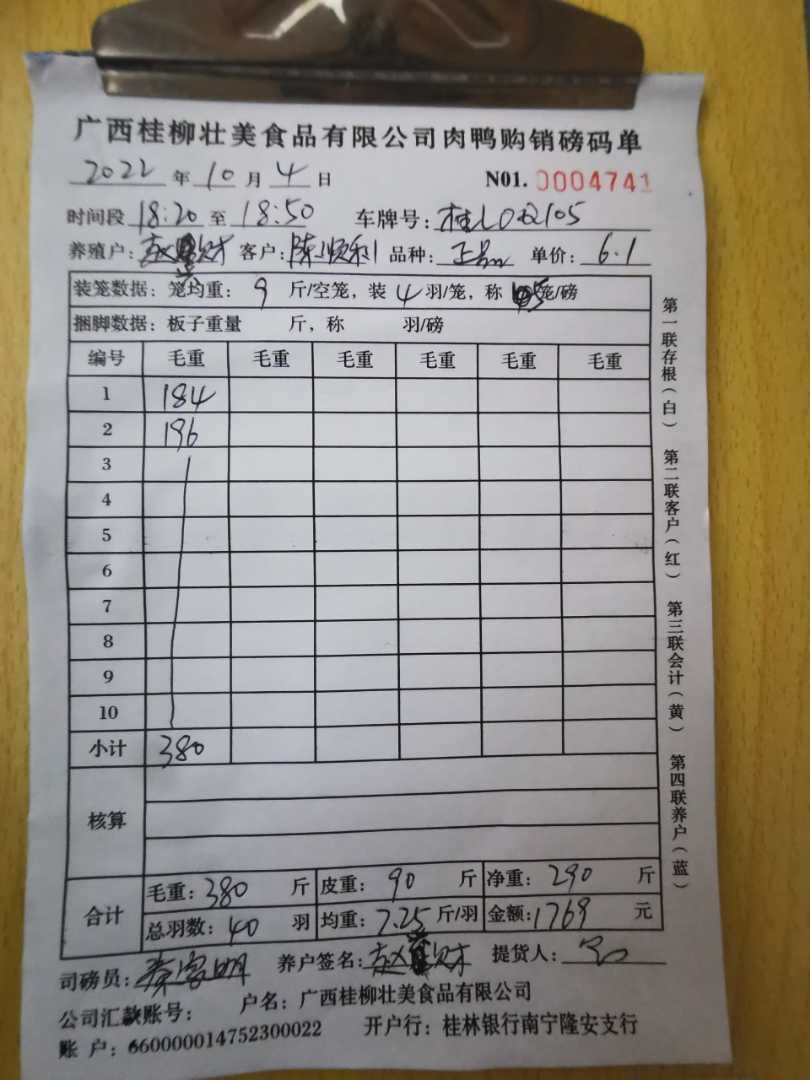 广西桂柳壮美食品有限公司肉鸭购销磅码单
2022 年 10 月 4 日 N01. 0004741
时间段 18:20 至 18:50 车牌号:
养殖户: 客户: 陈顺利 品种: 正品 单价: 6.1
装笼数据: 笼均重: 9 斤/空笼, 装 4 羽/笼, 称 5 笼/磅
捆脚数据: 板子重量 斤, 称 羽/磅
编号 毛重 毛重 毛重 毛重 毛重 毛重
1 184
2 196
3
4
5
6
7
8
9
10
小计 380
核算
合计 毛重: 380 斤 皮重: 90 斤 净重: 290 斤
总羽数: 40 羽 均重: 7.25 斤/羽 金额: 1769 元
司磅员: 养户签名: 提货人:
公司汇款账号: 户名: 广西桂柳壮美食品有限公司
账 户: 660000014752300022 开户行: 桂林银行南宁隆安支行
第一联存根(白) 第二联客户(红) 第三联会计(黄) 第四联养户(蓝)